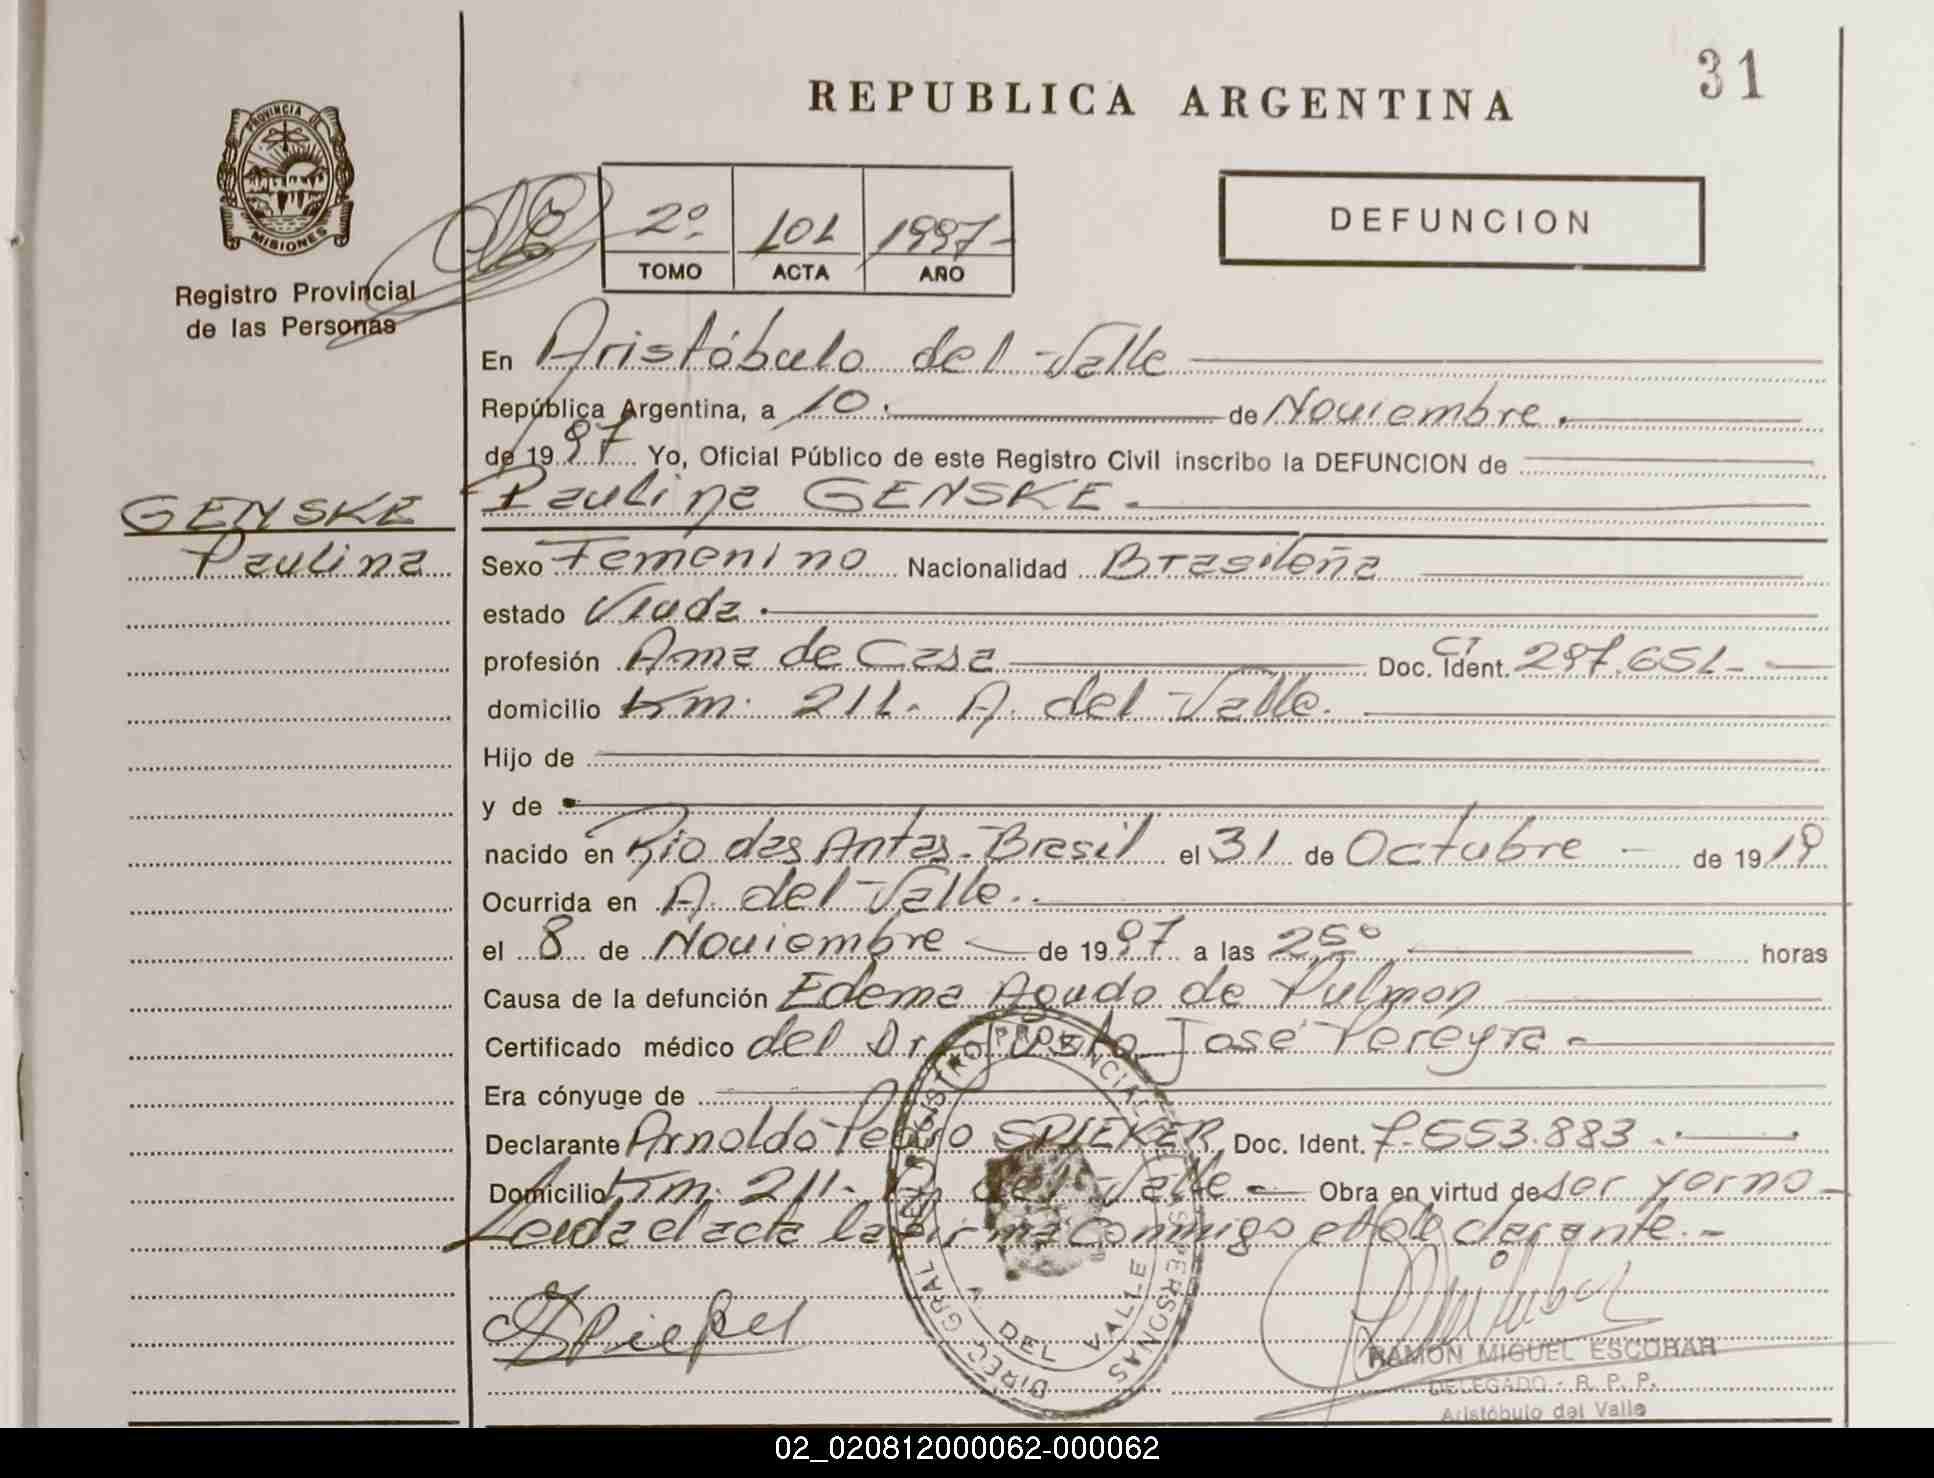 31
REPUBLICA ARGENTINA
PROVINCIA DE
MISIONES
Registro Provincial
de las Personas
2º 101 1997-
TOMO ACTA AÑO
DEFUNCION
En Aristóbulo del Valle
República Argentina, a 10. de Noviembre.
de 1997 Yo, Oficial Público de este Registro Civil inscribo la DEFUNCION de
GENSKE
Paulina
Paulina GENSKE.
Sexo Femenino Nacionalidad Brasileña
estado Viuda.
profesión Ama de Casa Doc. Ident. CI 297.651-
domicilio Km. 211. A. del Valle.
Hijo de
y de
nacido en Rio das Antas-Brasil el 31 de Octubre - de 1919
Ocurrida en A. del Valle.
el 8 de Noviembre de 1997 a las horas
Causa de la defunción Edema Agudo de Pulmon
Certificado médico del Dr. Justo José Pereyra-
Era cónyuge de
Declarante Arnoldo Pedro SPIEKER Doc. Ident. 7.553.883.
Domicilio Km. 211. A. del Valle- Obra en virtud de ser yerno-
Leida el acta la firma conmigo el declarante.-
Spieker
DIREC. GRAL. DEL REGISTRO PROVINCIAL DE LAS PERSONAS
A. DEL VALLE
RAMON MIGUEL ESCOBAR
DELEGADO - R. P. P.
Aristóbulo del Valle
02_020812000062-000062